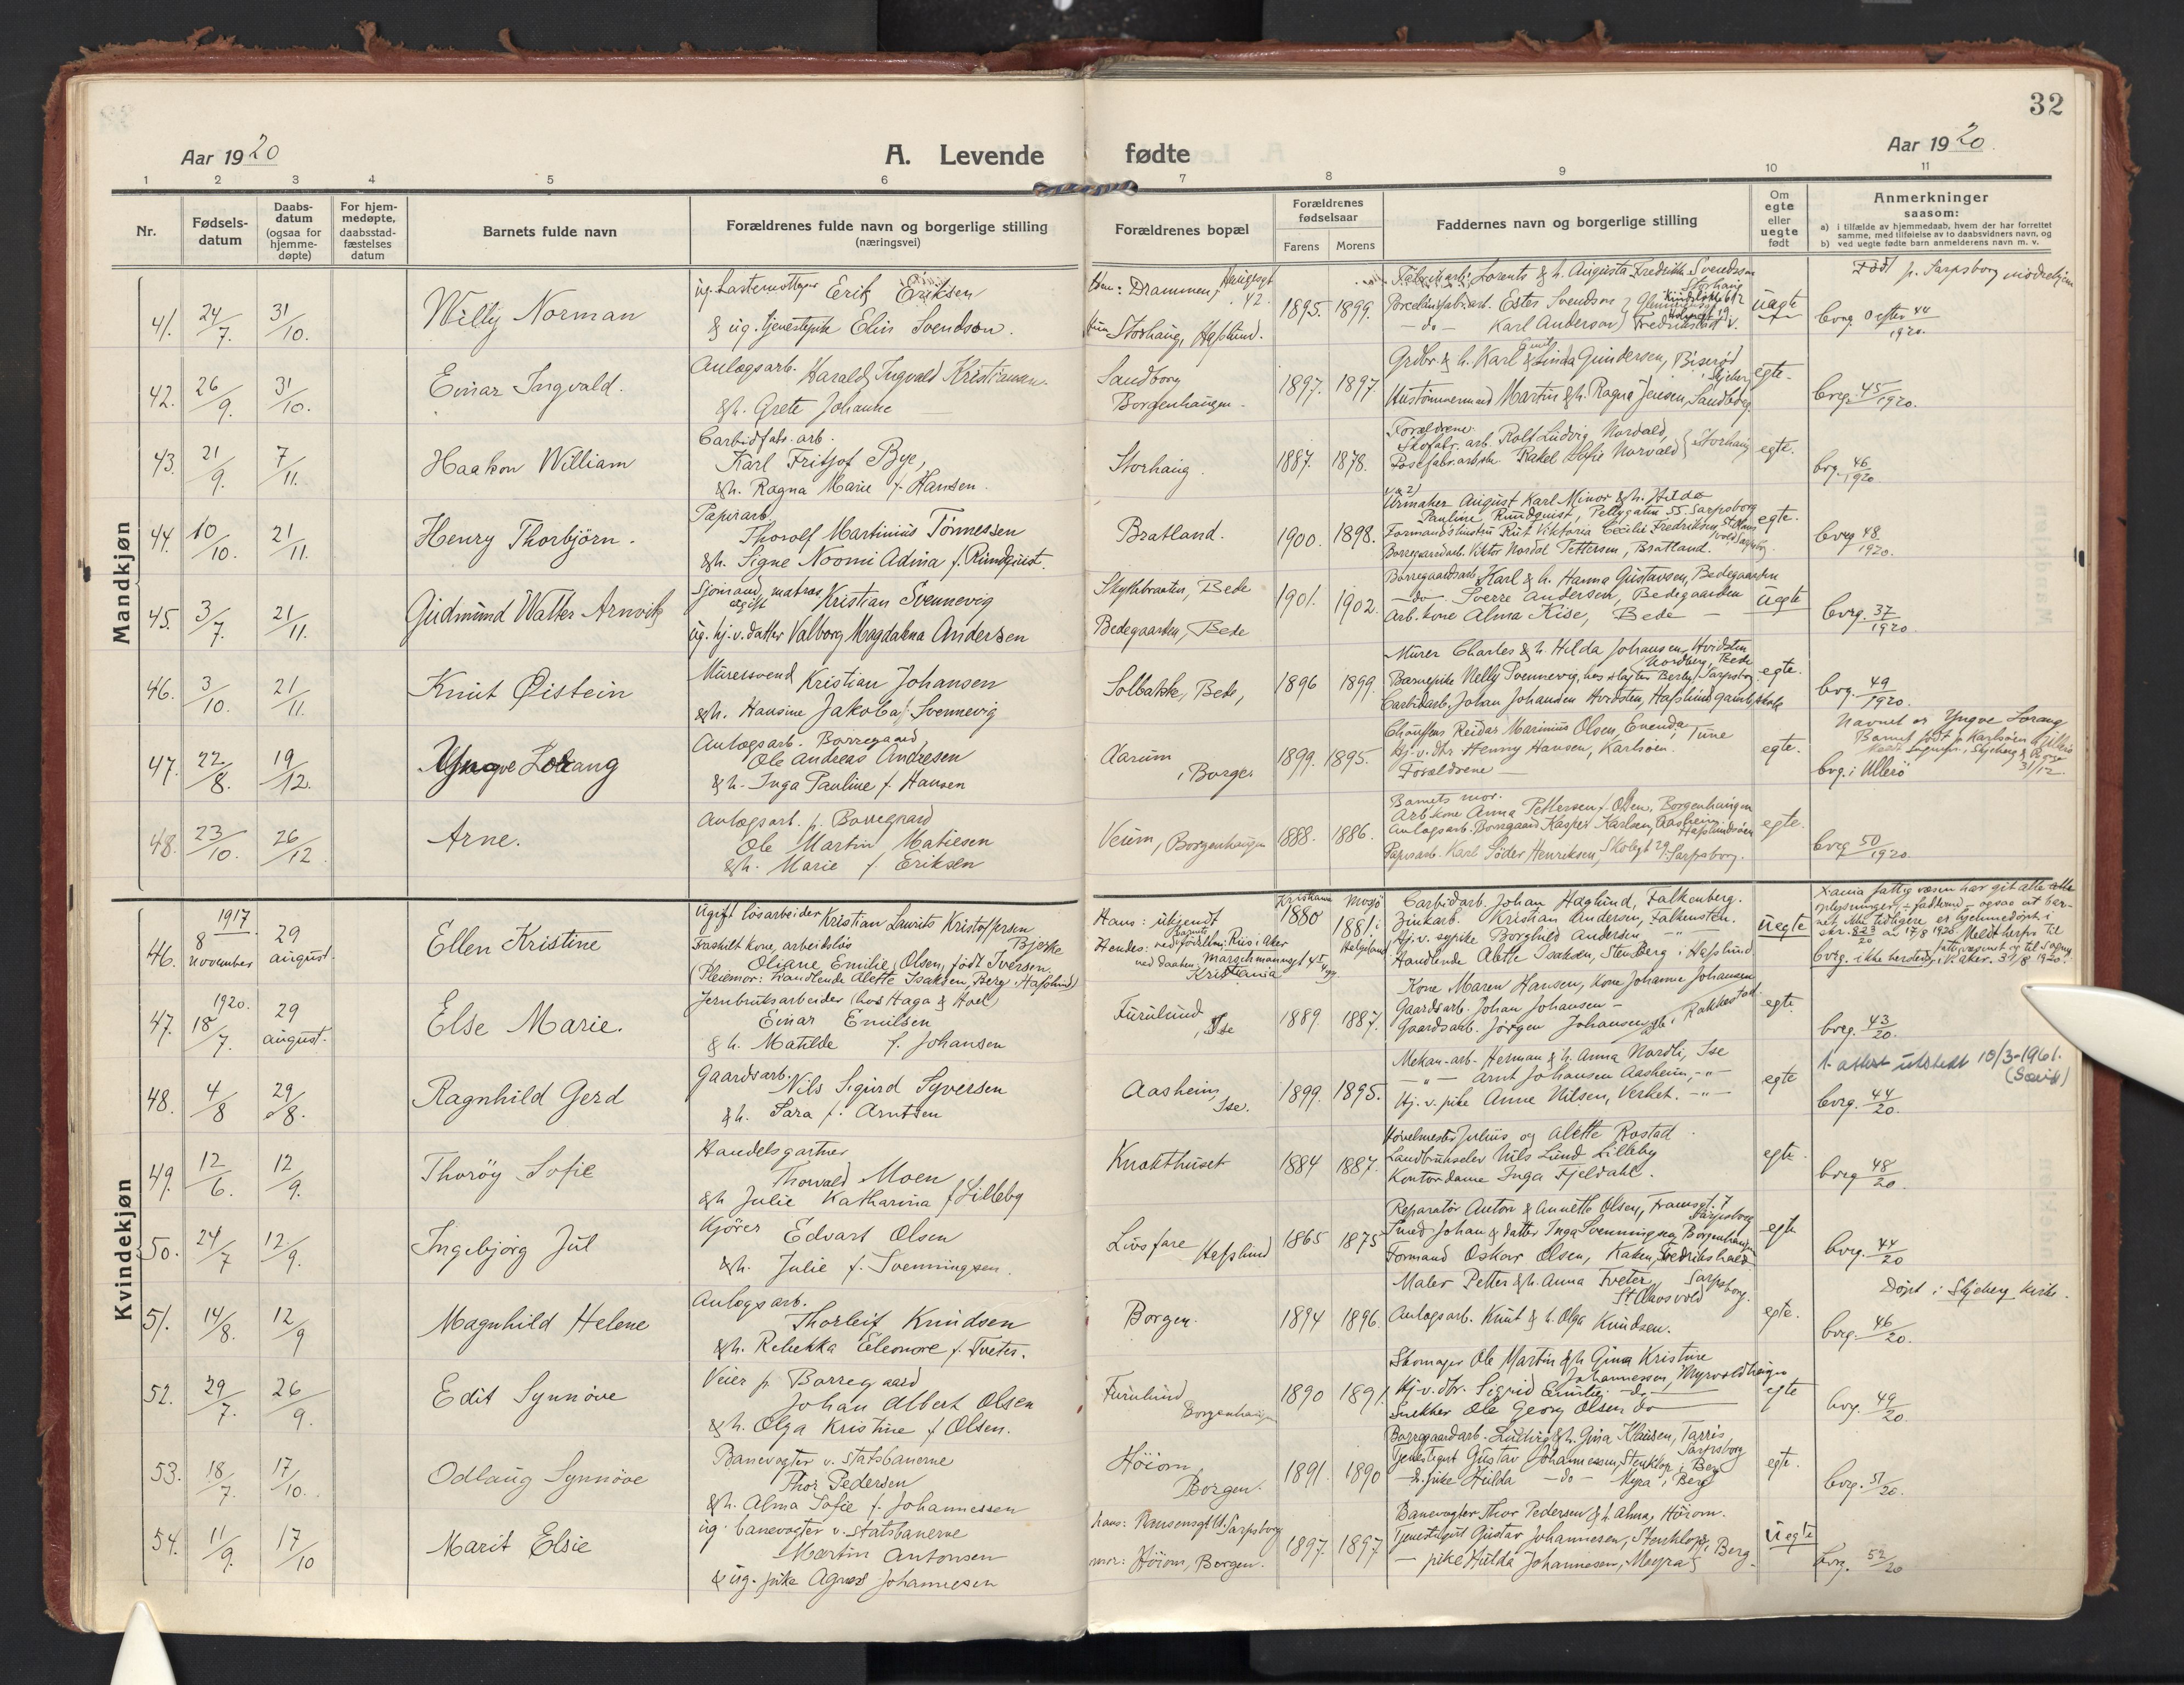 32
Aar 1920
A. Levende
fødte
Aar 1920.
1 2 3 4 5 6 7 8 9 10 11
Nr.
Fødsels-
datum
Daabs-
datum
(ogsaa for
hjemme-
døpte)
For hjem-
medøpte,
daabsstad-
fæstelses
datum
Barnets fulde navn
Forældrenes fulde navn og borgerlige stilling
(næringsvei)
Forældrenes bopæl
Forældrenes
fødselsaar
Farens
Morens
Faddernes navn og borgerlige stilling
Om
egte
eller
uegte
født
Anmerkninger
saasom:
a) i tilfælde av hjemmedaab, hvem der har forrettet
samme, med tilføielse av to daabsvidners navn, og
b) ved uegte fødte barn anmelderens navn m. v.
Mandkjøn
41. 24/7. 31/10.
Willy Norman
Erik Eriksen
& ug. tjenestepike Elin Svendson.
Drammen,
Storhaug, Hafslund.
1895. 1899.
Lorents & h. Augusta Fredrikke Svendsson
Storhaug
Ester Svendson
— do — Karl Anderson
uegte
Født p. Sarpsborg
1920.
42. 26/9. 31/10.
Einar Ingvald.
Anlægsarb. Harald Ingvald Kristiansen
& h. Grete Johanne
Sandborg
Borgenhaugen.
1897. 1897
Grdbr. & h. Karl & Linda Gundersen, Biserød
Skjeberg
Martin & h. Ragna Jensen, Sandborg
egte.
bvrg. 45/1920.
43. 21/9. 7/11.
Haakon William
Carbidfabr. arb.
Karl Fritjof Bye,
& h. Ragna Marie f. Hansen.
Storhaug.
1887. 1878.
Forældrene.
Skofabr. arb. Rolf Ludvig Norvald
Rakel Sofie Norvald } Storhaug
egte.
bvg. 46/1920
44. 10/10. 21/11.
Henry Thorbjörn.
Papirarb.
Thorolf Martinius Tönnessen
& h. Signe Noomi Adina f. Rundquist.
Bratland.
1900. 1898.
Urmaker August Karl Minor & h. Hilda
Pauline Rundquist, Pellygaten 55 Sarpsborg
Formandshustru Rut Viktoria Cecilie Fredriksen, St. Olavs
vold Sarpsborg
Borregaardarb. Viktor Nordal Pettersen, Bratland.
egte.
bvrg 48/1920.
45. 3/7. 21/11.
Gudmund Walter Arnvik
Sjömand, matros Kristian Svennevig
ug. hj. v. datter Valborg Magdalena Andersen
Skytebraaten, Bede
Bedegaarden, Bede
1901. 1902.
Borregaardsarb. Karl & h. Hanna Gustavsen, Bedegaarden
— do — Sverre Andersen, Bedegaarden
Arb. kone Alma Kise, Bede —
uegte
bvrg. 37/1920.
46. 3/10. 21/11.
Knut Øistein
Murersvend Kristian Johansen
& h. Hansine Jakoba f. Svennevig
Solbakke, Bede,
1896 1899.
Murer Charles & h. Hilda Johansen, Hvidsten
Nordberg, Bede
Barnepike Nelly Svennevig, hos Berby, Sarpsborg
Carbidarb. Johan Johansen Hvidsten, Hafslund gamle skole
egte.
bvg. 49/1920.
47. 22/8. 19/12.
Yngve Lorang
Anlægsarb. Borregaard,
Ole Andreas Andresen
& h. Inga Pauline f. Hansen
Aarum
i Borge.
1899. 1895.
Chauffør Reidar Marinius Olsen, Enenda, Tune
Hj. v. dtr. Henny Hansen, Karlsøen.
Forældrene —
egte.
Navnet er Yngve Lorang
Barnet født p. Karlsøen
31/12.
bvg. i Ullerö
48. 23/10. 26/12
Arne.
Anlægsarb. p. Borregaard
Ole Martin Matiesen
& h. Marie f. Eriksen
Veum, Borgenhaugen
1888. 1886.
Barnets mor.
Arb. kone Anna Pettersen f. Olsen, Borgenhaugen
Anlægsarb. Borregaard Kasper Karlsen, Aasheim
Hafslundsöen
Papirarb. Karl Söder Henriksen, Skolegt 29 Sarpsborg.
egte.
bvrg 50/1920.
Kvindekjøn
46. 1917 8 november 29 august.
Ellen Kristine
Ugift lösarbeider Kristian Laurits Kristoffersen
Bjerke
Fraskilt kone, arbeidslös
Oliane Emilie Olsen, født Iversen.
(Pleiemor: handlende Alette Isaksen, Berg, Hafslund)
Hans: ukjendt
Hendes: ved fødselen: Riis i Aker
ved daaben: Marschmannsgt
Kristiania
Kristiania 1880 Mosjö 1881 i Helgeland
Carbidarb. Johan Haglund, Falkenberg.
Zinkarb. Kristian Andersen, Falkensten.
Hj. v. sypike Borghild Andersen —"—
Handlende Alette Isaksen, Stenberg i Hafslund
uegte
X-ania fattigvæsen har git alle
oplysninger,
skr. 823/20 av 17/8 1920. Meldt herfra til
i V. Aker. 31/8 1920.
47. 1920. 18/7. 29 august.
Else Marie.
Jernbruksarbeider (hos Haga & Hoel)
Einar Emilsen
& h. Matilde f. Johansen
Furulund
, Ise
1889. 1887.
Kone Maren Hansen, Kone Johanne Johansen
Gaardsarb. Johan Johansen —
Gaardsarb. Jörgen Johansen, Rakkestad.
egte
bvrg. 43/20.
48. 4/8 29/8.
Ragnhild Gerd
Gaardsarb. Nils Sigurd Syversen
& h. Sara f. Arntsen
Aasheim,
Ise.
1899. 1895.
Mekan. arb. Herman & h. Anna Nordli, Ise
—"— Arnt Johansen Aasheim, —"—
Hj. v. pike Anne Nilsen, Verket. —"—
egte
1. attest utstedt 10/3-1961.
bvrg. 44/20.
49. 12/6. 12/9.
Thoröy Sofie
Handelsgartner
Thorvald Moen
& h Julie Katharina f Lilleby
Knatthuset
1884 1887.
Hövelmester Julius og Alette Rostad.
Landbrukselev Nils Lund Lilleby
Kontordame Inga Fjeldahl.
egte.
bvrg 48/20.
50. 24/7 12/9.
Ingebjörg Jul
Kjörer Edvart Olsen
& h. Julie f. Svenningsen.
Livsfare Hafslund
1865 1875
Reparatör Anton & Annette Olsen, Framgt. 7
Sarpsborg
Smed Johan & datter Inga Svenningsen, Borgenhaugen
Formand Oskar Olsen, Fredrikshald
egte
bvrg. 44/20
51. 14/8. 12/9
Magnhild Helene
Anlægsarb.
Thorleif Knudsen
& h. Rebekka Eleonore f. Tveter.
Borgen.
1894 1896.
Maler Petter & h. Anna Tveter, Sarpsborg.
St. Olavsvold
Anlægsarb. Knut & h. Olga Knudsen.
egte.
Døpt i Skjeberg kirke.
bvrg. 46/20.
52. 29/7. 26/9.
Edit Synnöve
Veier p. Borregaard
Johan Albert Olsen
& h. Olga Kristine f Olsen.
Furulund
Borgenhaugen
1890 1891.
Skomager Ole Martin & h Gina Kristine
Johannessen, Myrvoldhaugen
Hj. v. dtr. Sigrid Emilie — do —
Snekker Ole Georg Olsen do —
egte
bvrg. 49/20.
53. 18/7. 17/10.
Odlaug Synnöve
Banevogter v. Statsbanerne
Thor Pedersen
& h. Alma Sofie f. Johannessen
Höiom,
Borgen.
1891. 1890
Borregaardarb. Ludvig & h. Gina Klausen, Tarris
Sarpsborg
Tjenestegut Gustav Johannessen, Stenklop i Berg
pike Hulda — do — Myra i Berg
egte.
bvrg. 51/20.
54. 11/9. 17/10
Marit Elsie
ug. banevogter v. Statsbanerne
Martin Antonsen
& ug. pike Agnes Johannesen
hans: Sarpsborg
mor: Höiom, Borgen.
1897. 1897
Banevogter Thor Pedersen & h Alma, Höiom.
Tjenestegut Gustav Johannesen, Stenklop, Berg
— pike Hulda Johannesen, Myra, Berg.
uegte
bvrg. 52/20